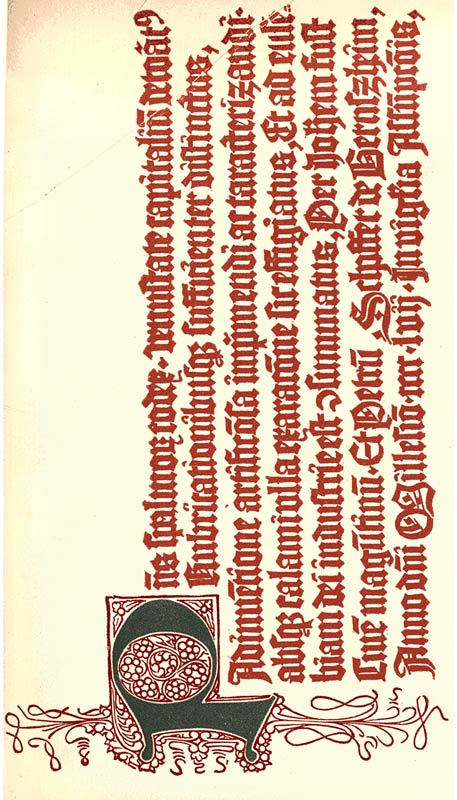 Pñs spalmoꝝ codex. venustate capitaliū decoratꝰ
Rubricationibusqꝫ sufficienter distinctus,
Adinuētione artificōsa imprimendi ac caracterizandi.
absqꝫ calami vlla exaracōne sic effigiatus, Et ad euse
biam dei industrie est ↄsummatus, Per Johēm fust
Ciuē magūtinū. Et Petrū Schoffer de Gernszheim,
Anno dñi Millesio .cccc. lvij. In vigilia Assūpcōis,